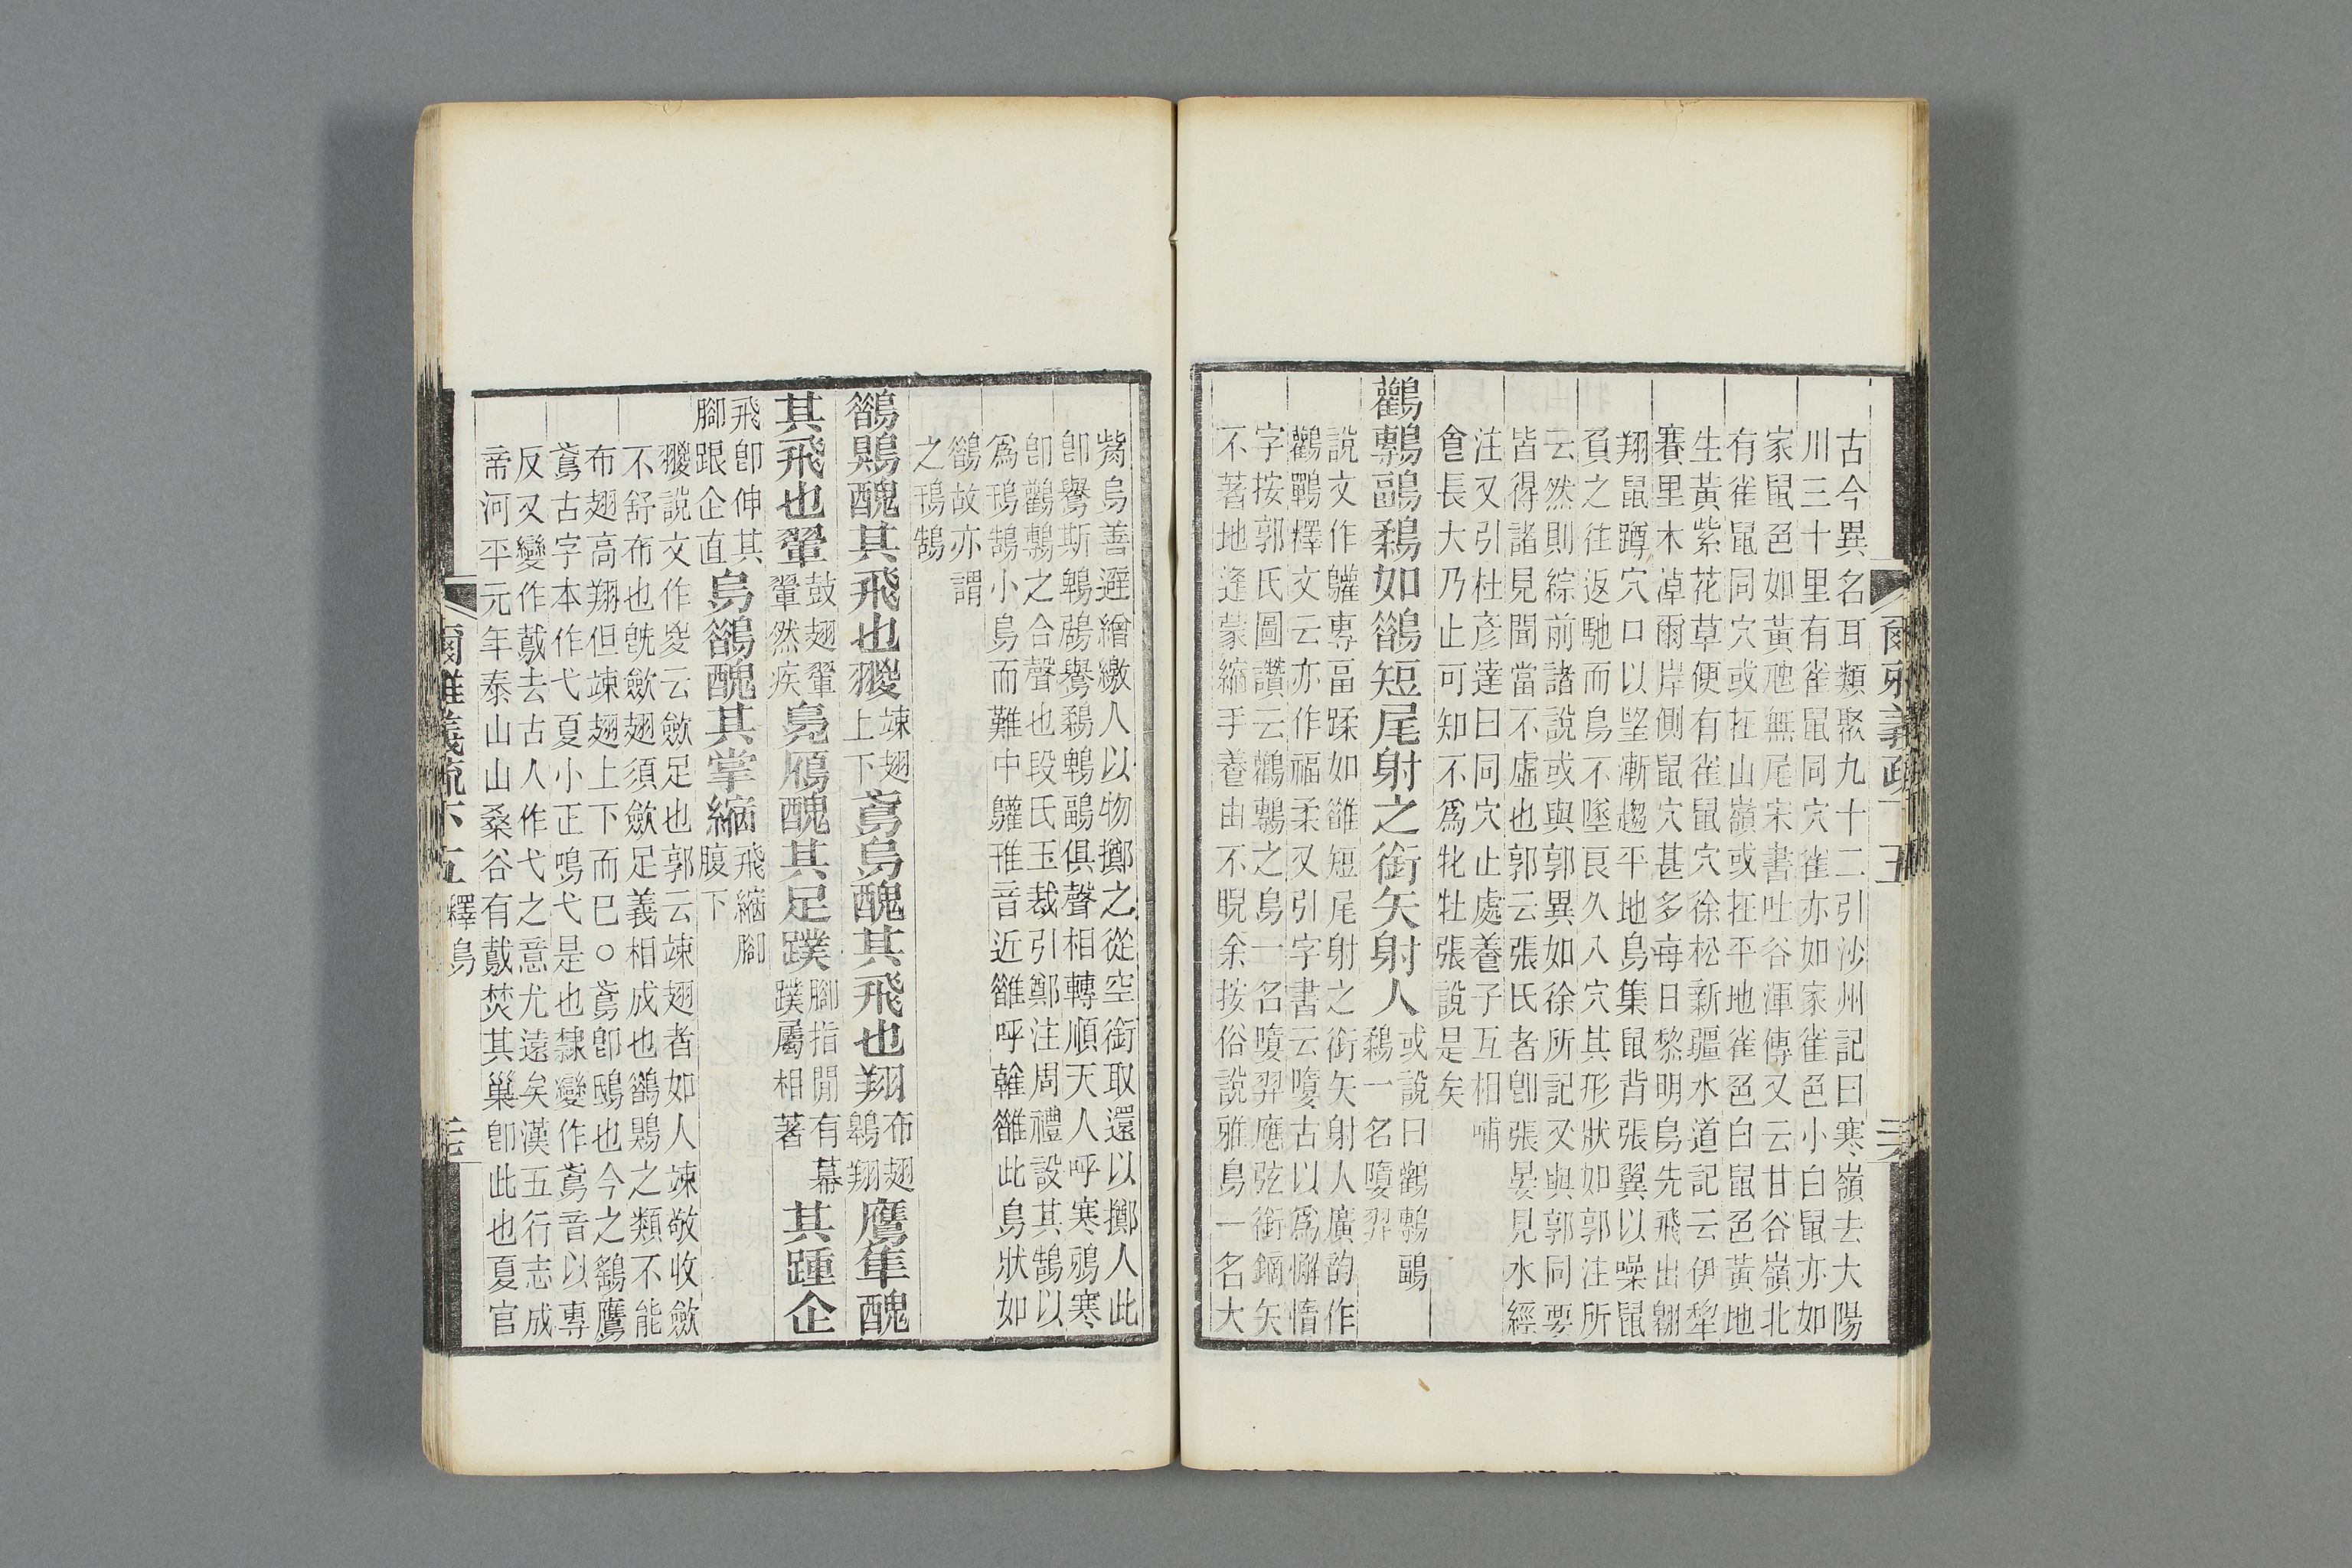 古今異名耳類聚九十二引沙州記曰寒嶺去大陽
川三十里有雀鼠同穴雀亦如家雀色小白鼠亦如
家鼠色如黃虺無尾宋書吐谷渾傳又云甘谷嶺北
有雀鼠同穴或在山嶺或在平地雀色白鼠色黃地
生黃紫花草便有雀鼠穴徐松新疆水道記云伊犂
賽里木淖爾岸側鼠穴甚多每日黎明鳥先飛出翱
翔鼠蹲穴口以望漸趨平地鳥集鼠背張翼以噪鼠
負之往返馳而鳥不墜良久入穴其形狀如郭注所
云然則綜前諸說或與郭異如徐所記又與郭同要
皆得諸見聞當不虛也郭云張氏者卽張晏見水經
注又引杜彥達曰同穴止處養子互相哺
食長大乃止可知不爲牝牡張說是矣
鸛鷒鶝鶔如鵲短尾射之銜矢射人
或說曰鸛鷒鶝
鶔一名墮羿
說文作䲰專畐蹂如雒短尾射之銜矢射人廣韵作
鸛鸅釋文云亦作福柔又引字書云墮古以爲懈惰
字按郭氏圖讚云鸛鷒之鳥一名墮羿應弦銜鏑矢
不著地逢蒙縮手養由不睨余按俗說雅鳥一名大
觜鳥善避繒繳人以物擲之從空銜取還以擲人此
卽鸒斯鵯鶋鸒鶔鵯鶝俱聲相轉順天人呼寒鴉寒
卽鸛鷒之合聲也段氏玉裁引鄭注周禮設其鵠以
爲鳱鵠小鳥而難中䲰𨾫音近雒呼𩀛雒此鳥狀如
鵲故亦謂
之鳱鵠
鵲鶪醜其飛也翪
竦翅
上下
鳶烏醜其飛也翔
布翅
翱翔
鷹隼醜
其飛也翬
鼓翅翬
翬然疾
鳧鴈醜其足蹼
腳指閒有幕
蹼屬相著
其踵企
飛卽伸其
腳跟企直
烏鵲醜其掌縮
飛縮腳
腹下
翪說文作㚇云斂足也郭云竦翅者如人竦敬收斂
不舒布也旣斂翅須斂足義相成也鵲鶪之類不能
布翅高翔但竦翅上下而已○鳶卽鴟也今之鷂鷹
鳶古字本作弋夏小正鳴弋是也隸變作鳶音以專
反又變作鷻去古人作弋之意尤遠矣漢五行志成
帝河平元年泰山山桑谷有䳒焚其巢卽此也夏官
爾雅義疏下五 釋鳥